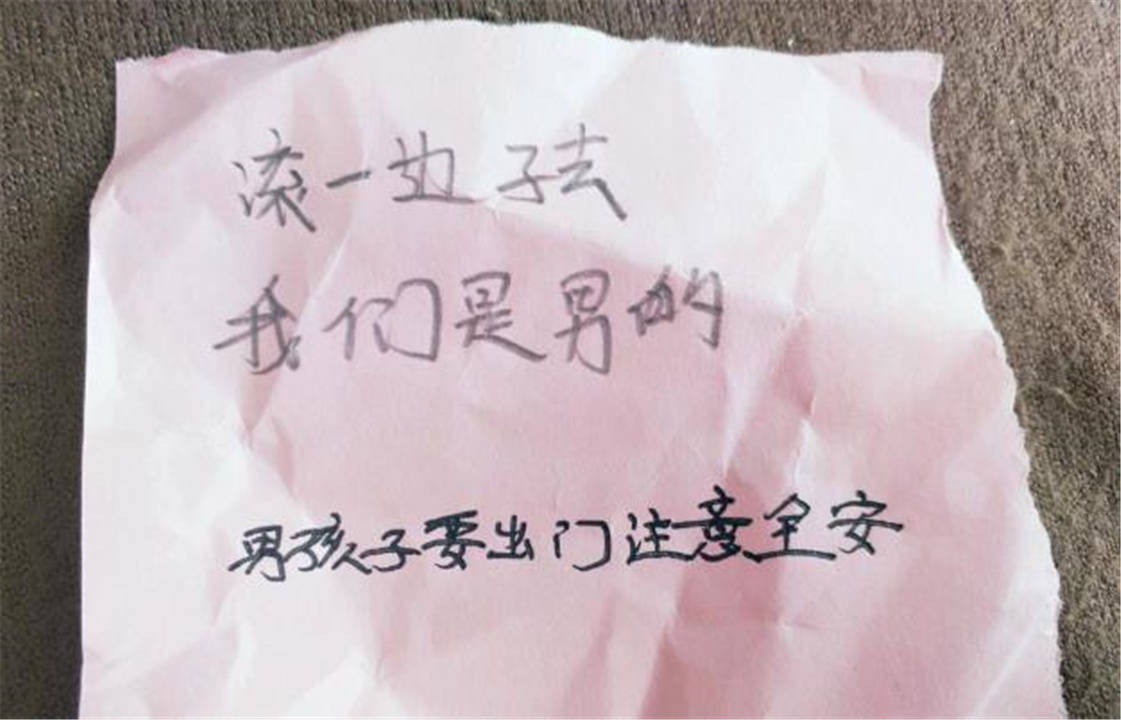 滚一边子去
我们是男的
男孩子要出门注意全安